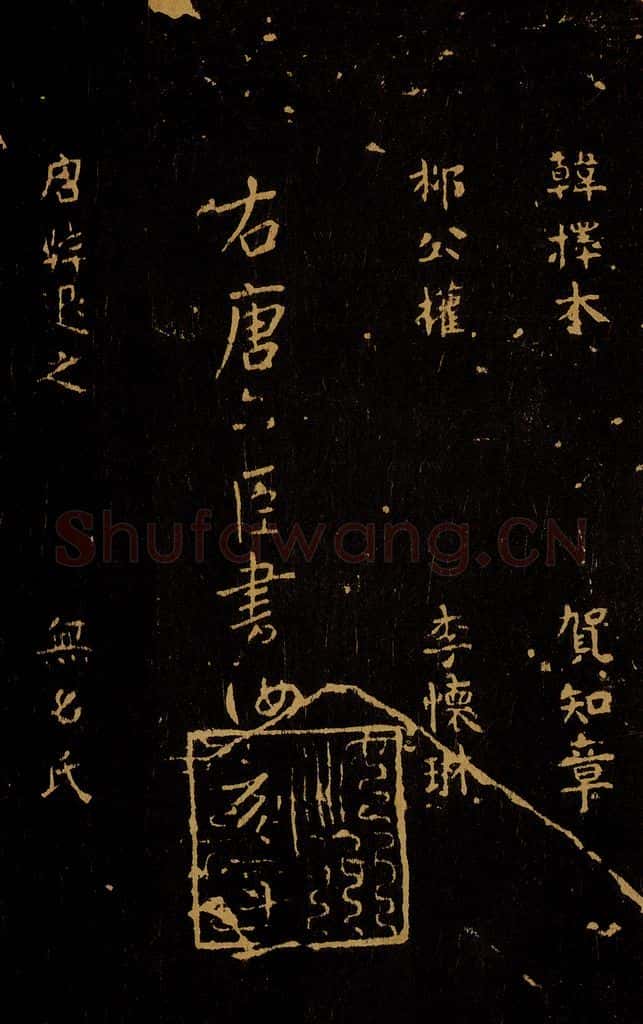 韓擇木 賀知章
柳公權 李懷琳
右唐六臣書 汝
唐 退之 無名氏
Shufawang.CN